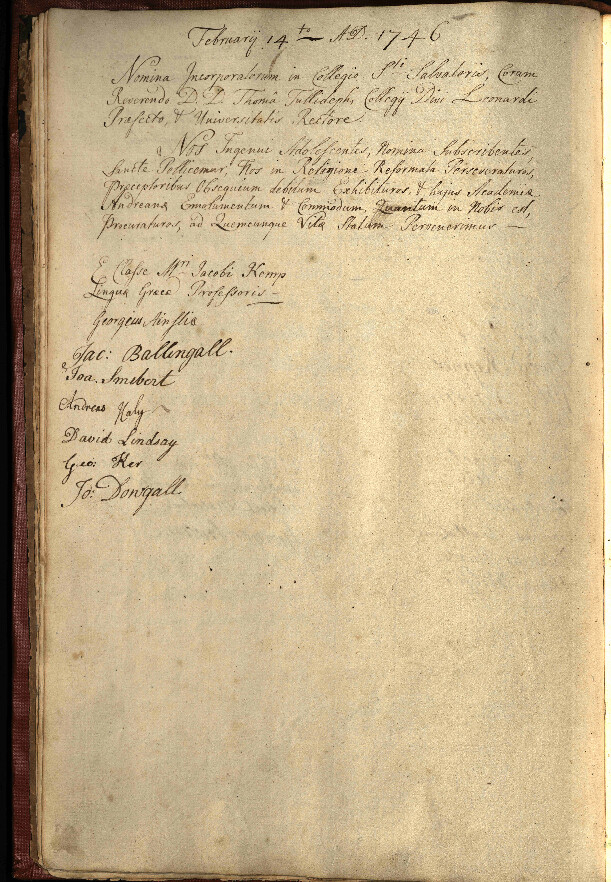 Februarij 14to AD. 1746
Nomina Incorporatorum in Collegio Sti Salvatoris, Coram
Reverendo D. D. Thomâ Tullideph, Collegij Divi Leonardi
Præfecto, & Universitatis Rectore.
Nos Ingenui Adolescentes, Nomina Subscribentes,
Sancte Pollicemur, Nos in Religione Reformata Perseveraturos,
Præceptoribus Obsequium debitum Exhibituros, & hujus Academiæ
Andreanæ Emolumentum & Commodum Quantum in Nobis est,
Procuraturos, ad Quemcunque Vitæ Statum Pervenerimus —
E Classe Mri Jacobi Kemp
Linguæ Græcæ Professoris —
Georgius Ainslie
Jac: Ballingall.
Joa. Smibert
Andreas Haly
David Lindsay
Geo: Ker
Jo: Dowgall